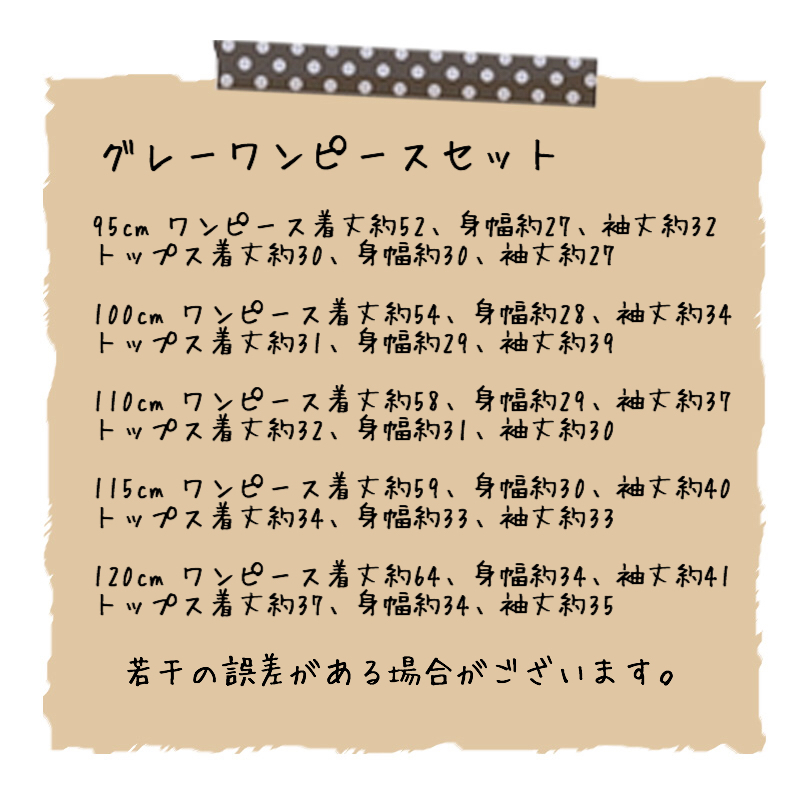 グレーワンピースセット
95cm ワンピース着丈約52、身幅約27、袖丈約32
トップス着丈約30、身幅約30、袖丈約27
100cm ワンピース着丈約54、身幅約28、袖丈約34
トップス着丈約31、身幅約29、袖丈約39
110cm ワンピース着丈約58、身幅約29、袖丈約37
トップス着丈約32、身幅約31、袖丈約30
115cm ワンピース着丈約59、身幅約30、袖丈約40
トップス着丈約34、身幅約33、袖丈約33
120cm ワンピース着丈約64、身幅約34、袖丈約41
トップス着丈約37、身幅約34、袖丈約35
若干の誤差がある場合がございます。